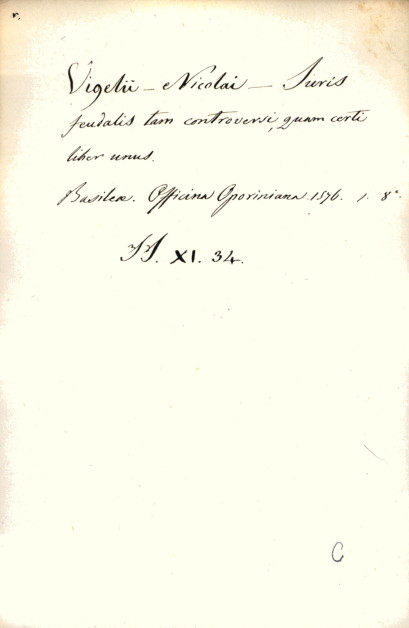 v.
Vigelii – Nicolai – Juris
feudalis tam controversi, quam certi
liber unus.
Basileæ. Officina Oporiniana. 1576. 1. 8°.
XI. 34.
C